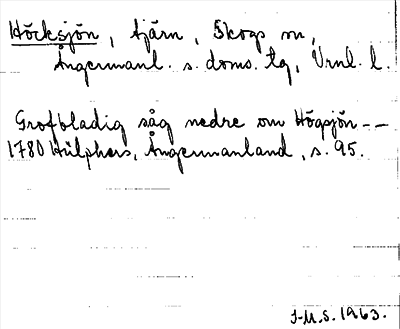 Höcksjön, tjärn, Skogs sn,
Ångermanl. s. doms. tg, Vrnl. l.
Grofbladig såg nedre om Högsjön --
1780 Hülphers, Ångermanland, s. 95.
I-M.S. 1963.